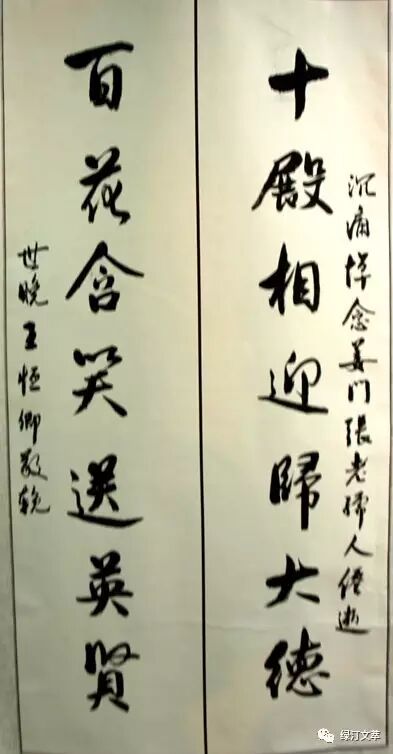 沉痛悼念姜门張老孺人僊逝
十殿相迎歸大德
百花含笑送英賢
世晚王恒卿敬輓
绿汀文萃